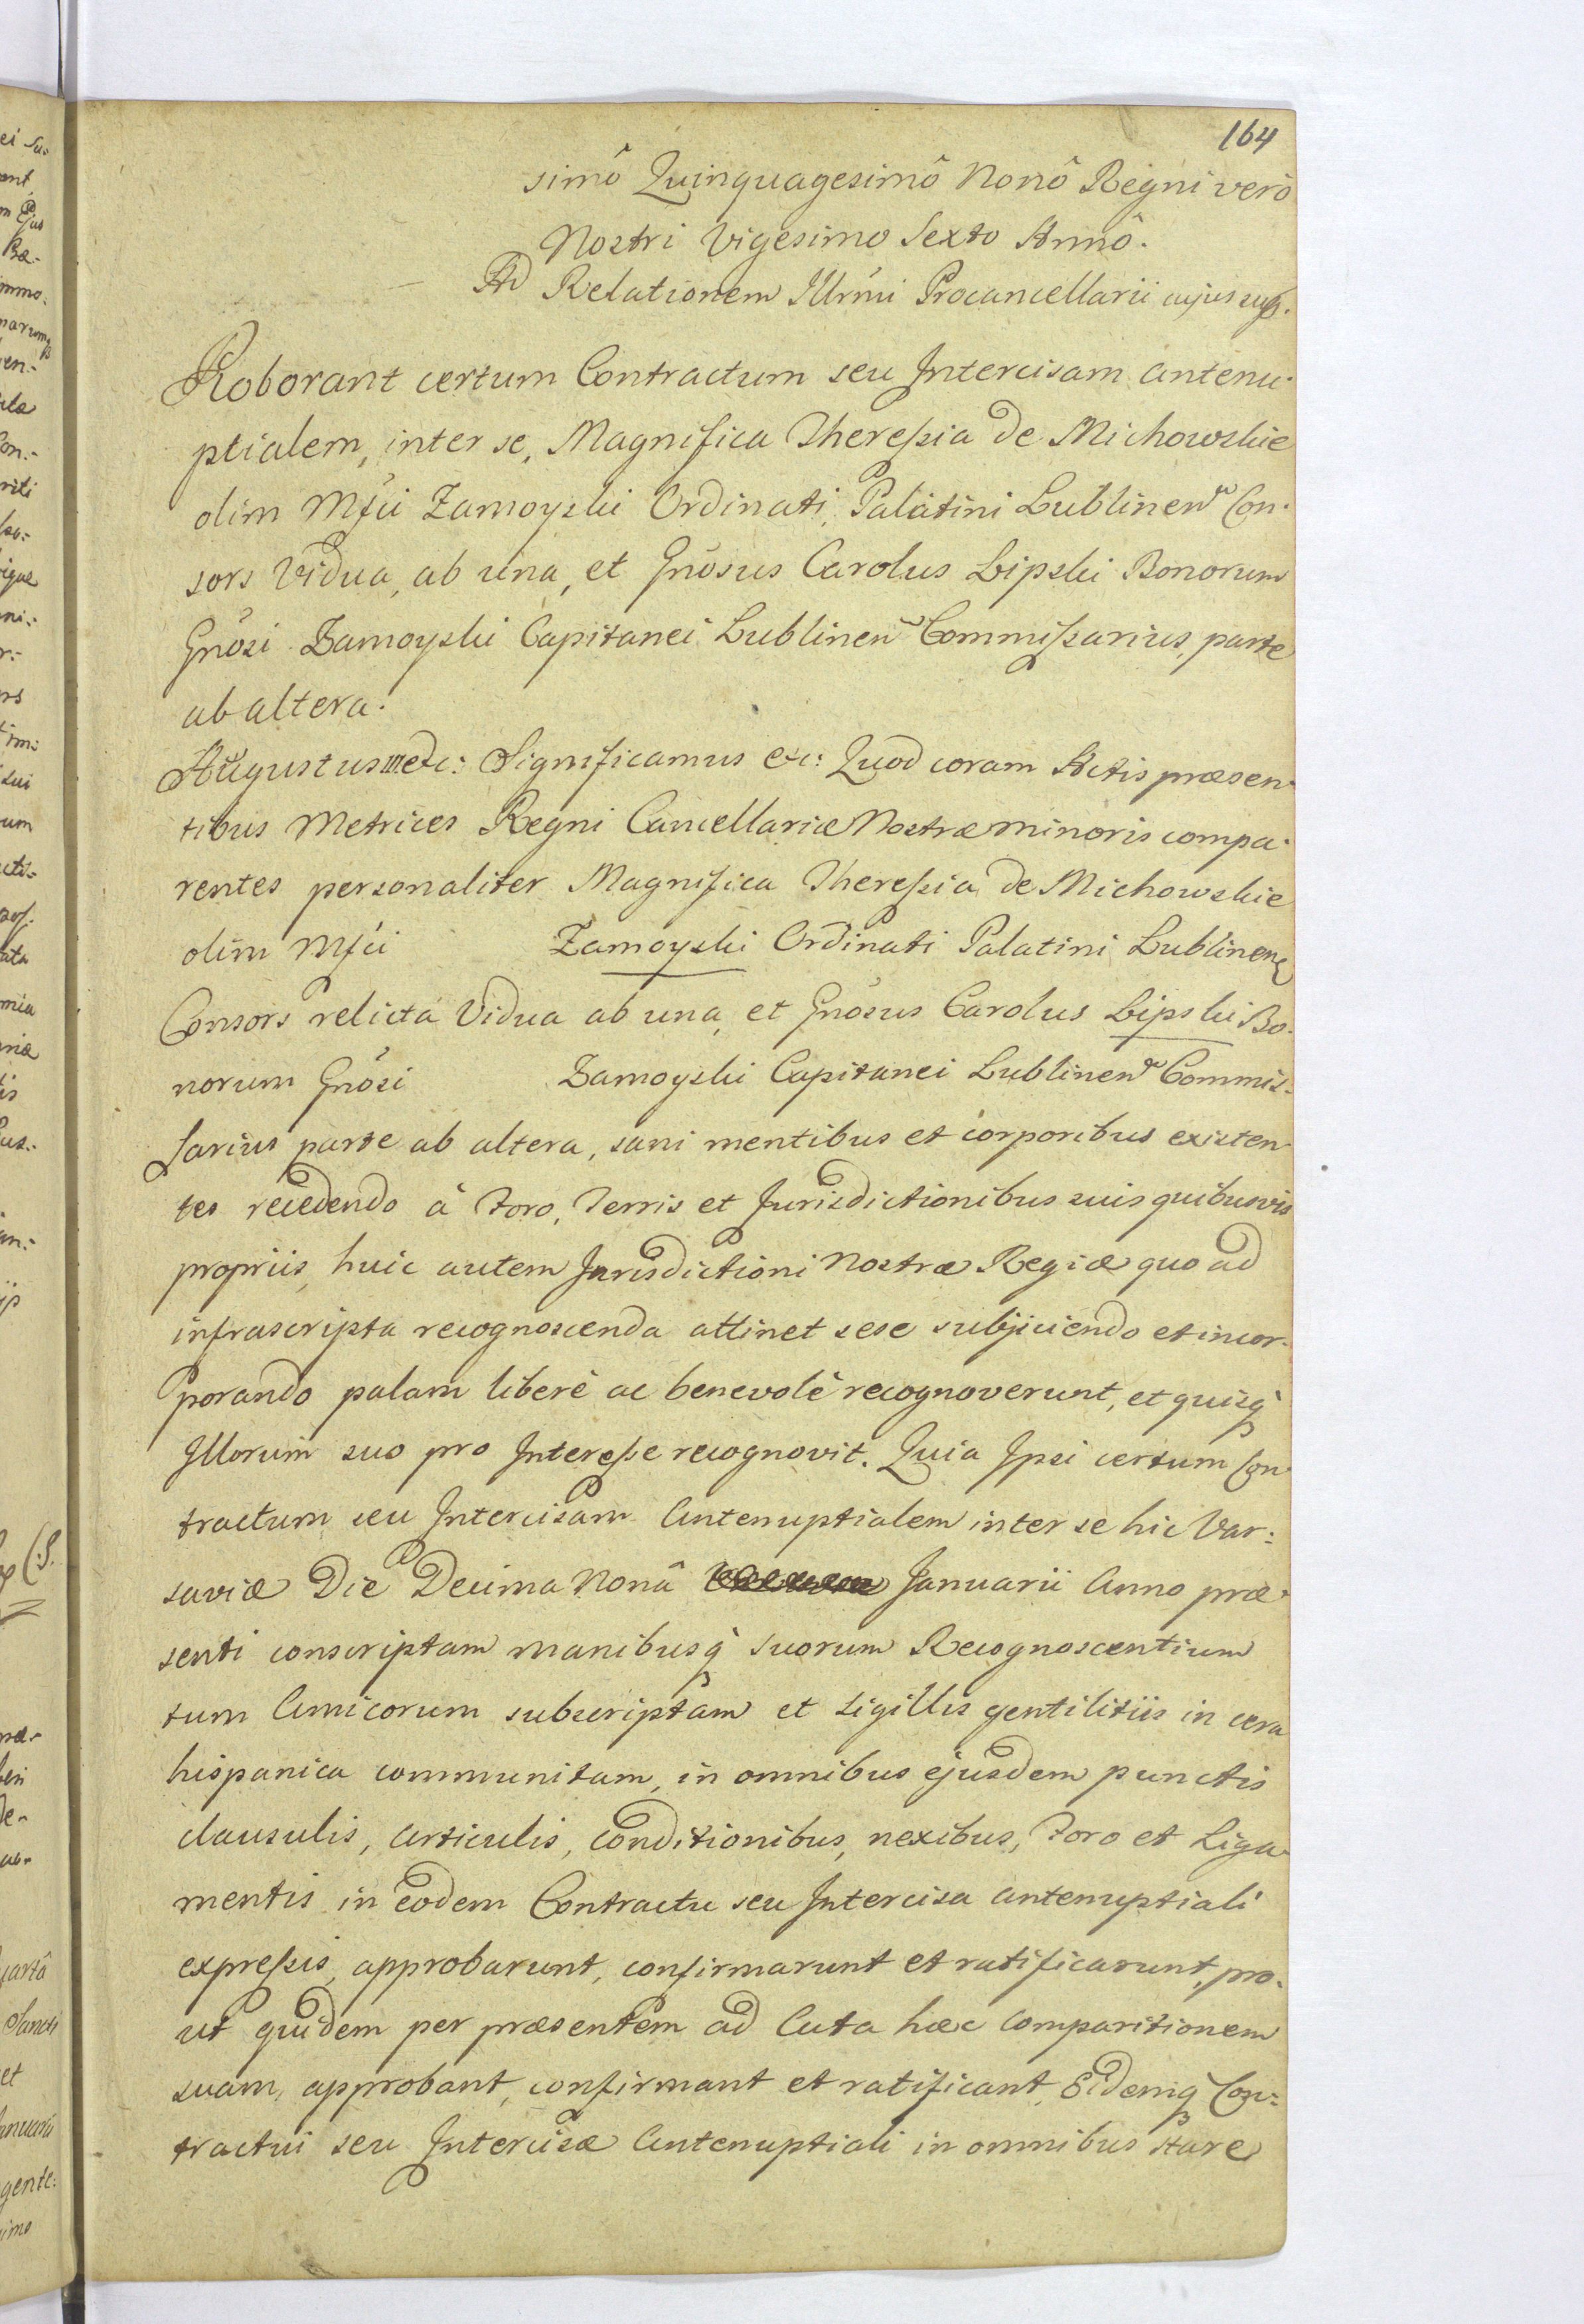 164
simô Quinquagesimô Nonô Regni verò
Nostri Vigesimo Sexto Annô.
Ad Relationem Illrmi Procancellarii cujus sup.
Roborant certum Contractum seu Intercisam antenu-
ptialem, inter se, Magnifica Theressia de Michowskie
olim Mfci Zamoyski Ordinati, Palatini Lublinen Con-
sors Vidua, ab una, et Gnosus Carolus Lipski Bonorum
Gnosi Zamoyski Capitanei Lublinen Commissarius, parte
ab altera.
Augustus III etc: Significamus etc: Quod coram Actis præsen-
tibus Metrices Regni Cancellariæ Nostræ minoris compa-
rentes personaliter Magnifica Theressia de Michowskie
olim Mfci Zamoyski Ordinati Palatini Lublinen
Consors relicta Vidua ab una, et Gnosus Carolus Lipski Bo-
norum Gnosi Zamoyski Capitanei Lublinen Commis-
sarius parte ab altera, sani mentibus et corporibus existen-
tes recedendo à Foro, Terris et Jurisdictionibus suis quibusvis
propriis, huic autem Jurisdictioni Nostræ Regiæ quo ad
infrascripta recognoscenda attinet sese subjiciendo et incor-
porando palam liberè ac benevolè recognoverunt, et quisq
Illorum suo pro Interesse recognovit. Quia Ipsi certum Con
tractum seu Intercisam Antenuptialem inter se hic Var:
saviæ Die Decima Nonâ Januarii Anno præ-
senti conscriptam manibusq suorum Recognoscentium
tum Amicorum subscriptam et Sigillis gentilitiis in cera
hispanica communitam, in omnibus ejusdem punctis
clausulis, articulis, conditionibus, nexibus, Foro et Liga-
mentis in eodem Contractu seu Intercisa antenuptiali
expressis, approbarunt, confirmarunt et ratificarunt, pro-
ut quidem per præsentem ad Acta hæc Comparitionem
suam, approbant, confirmant et ratificant, Eidemq Con:
tractui seu Intercisæ Antenuptiali in omnibus stare